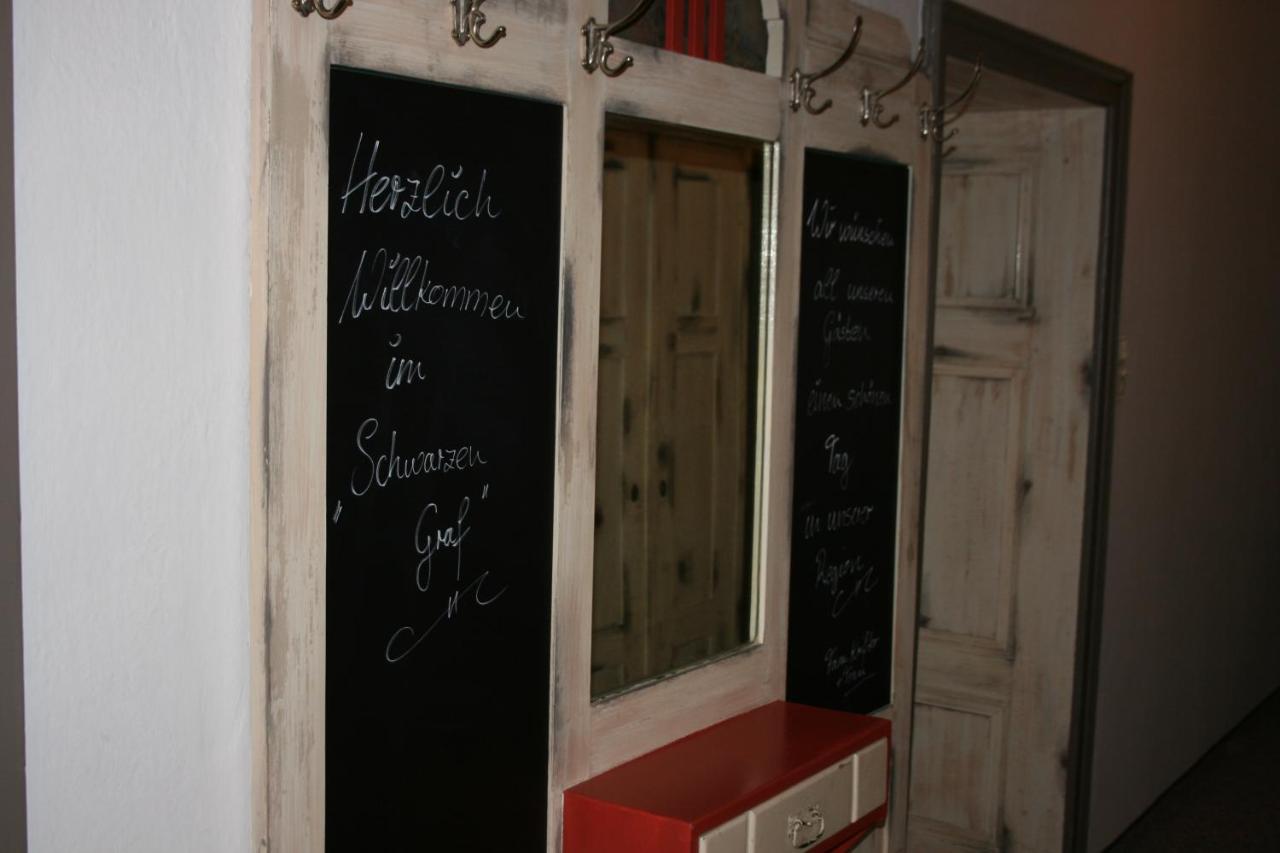 Herzlich
Willkommen
im
„Schwarzen
Graf"
Wir wünschen
all unseren
Gästen
einen schönen
Tag
in unserer
Region
Fam.